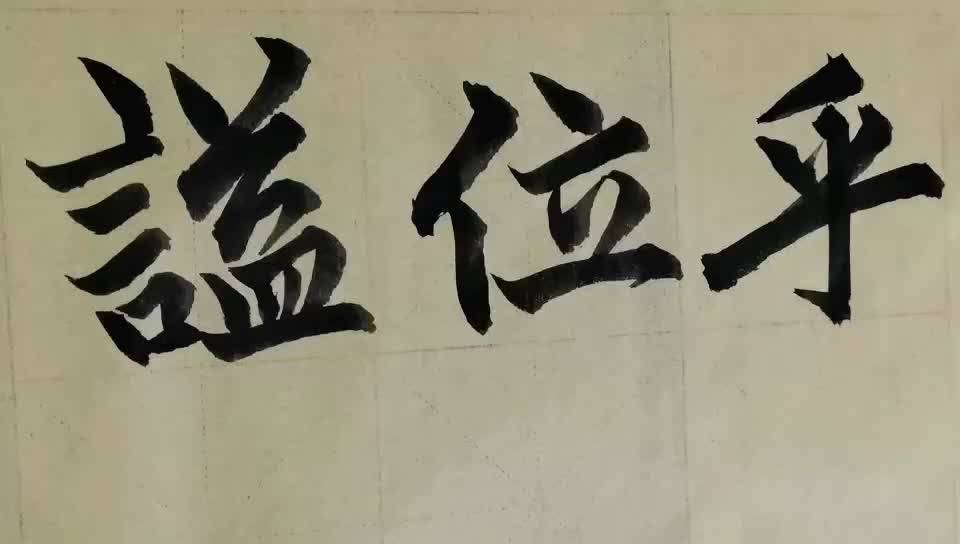 謚位乎